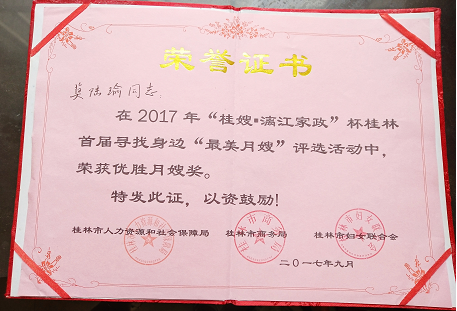 荣誉证书
莫佳瑜同志:
在2017年“桂嫂·漓江家政”杯桂林
首届寻找身边“最美月嫂”评选活动中,
荣获优胜月嫂奖。
特发此证,以资鼓励!
桂林市人力资源和社会保障局 桂林市商务局 桂林市妇女联合会
二〇一七年九月